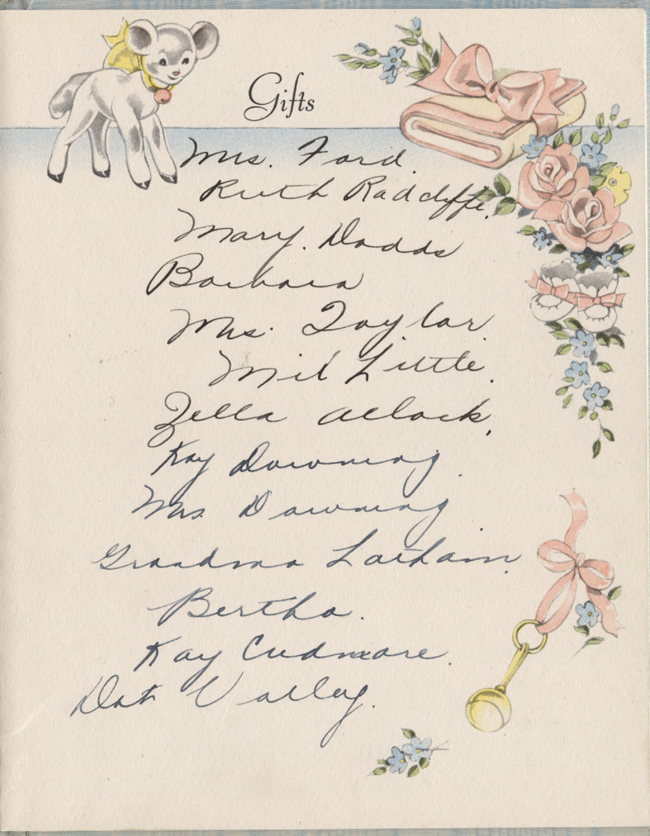 Gifts
Mrs. Ford.
Ruth Radcliffe.
Mary. Dodds
Barbara
Mrs. Taylor.
Mil Little.
Zella Allock.
Kay Downing.
Mrs Downing
Grandma Latham.
Bertha.
Kay Cudmore.
Dot Valley.